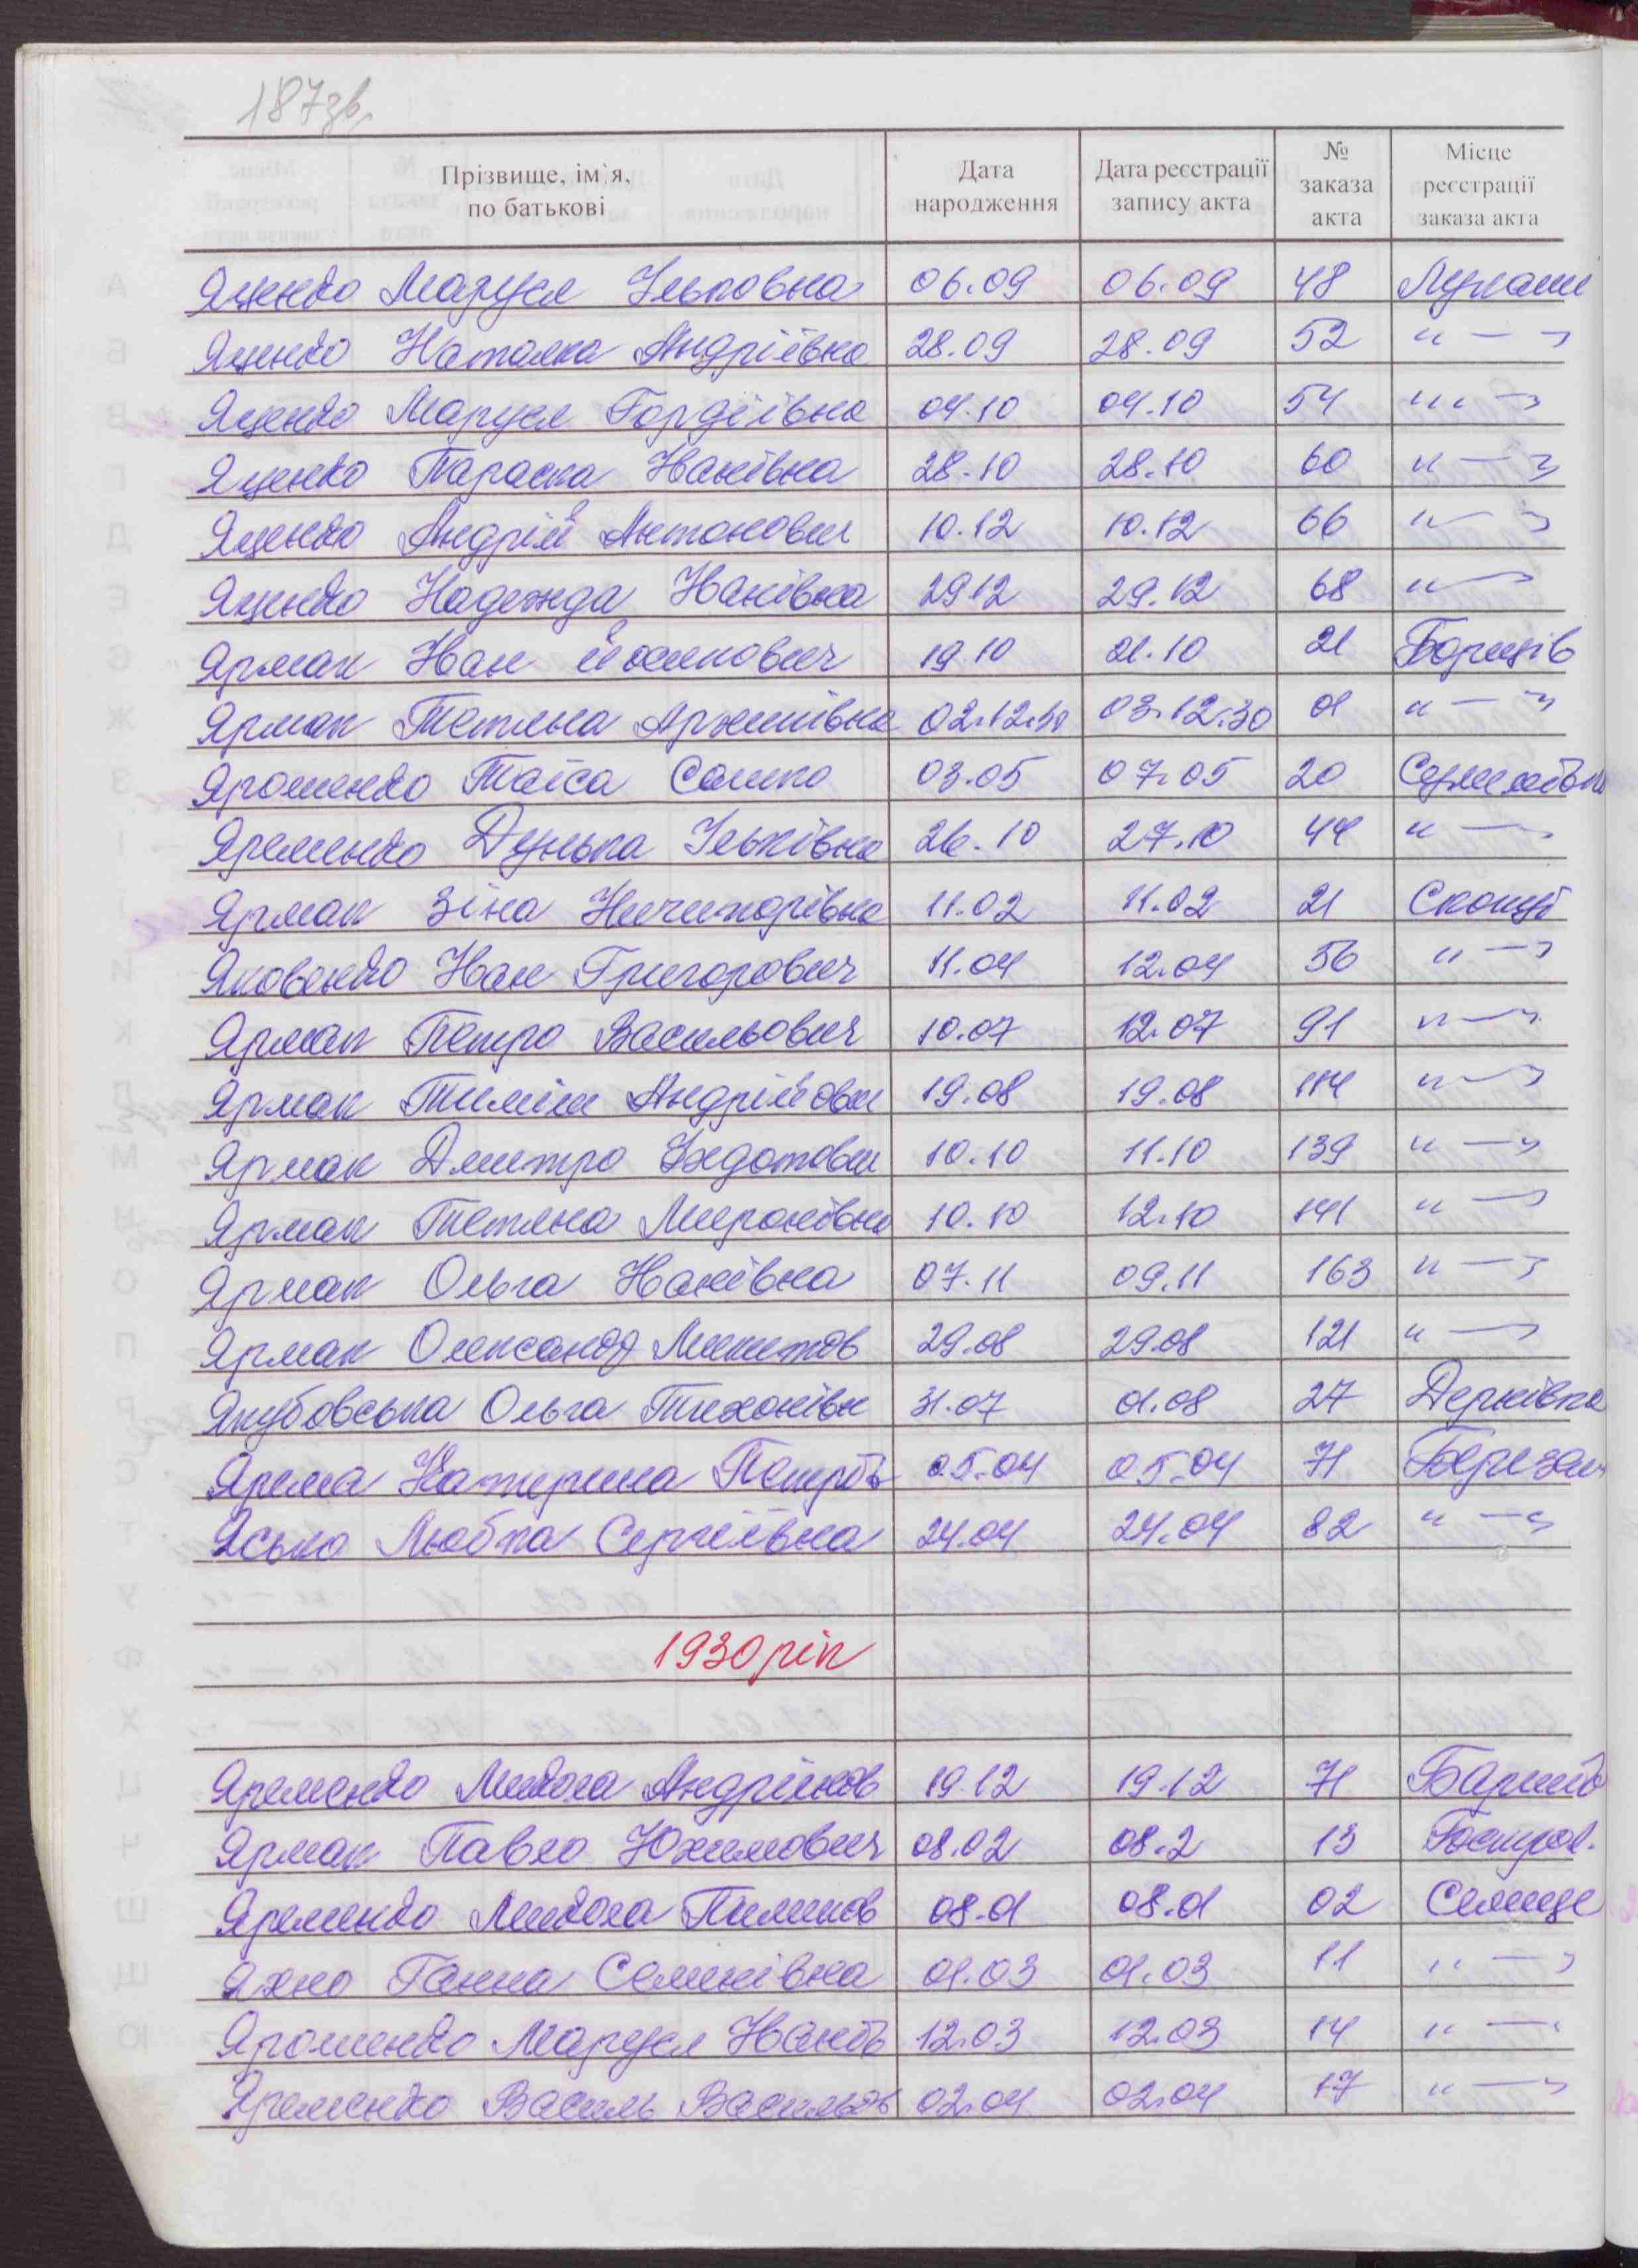 187зв.
Прізвище, ім`я, по батькові Дата народження Дата реєстрації запису акта № заказа акта Місце реєстрації заказа акта
Яценко Маруся Ільковна 06.09 06.09 48 Лукаші
Яценко Наталка Андріївна 28.09 28.09 52 "—"
Яценко Маруся Гордіївна 04.10 04.10 54 "—"
Яценко Параска Іванівна 28.10 28.10 60 "—"
Яценко Андрій Антонович 10.12 10.12 66 "—"
Яценко Надежда Іванівна 29.12 29.12 68 "—"
Ярмак Іван Йосипович 19.10 21.10 21 Борщів
Ярмак Тетяна Архипівна 02.12.30 03.12.30 01 "—"
Ярошенко Таїса Сашко 03.05 07.05 20
Яременко Дунька Ільківна 26.10 27.10 44 "—"
Ярмак Зіна Ничипорівна 11.02 11.02 21 Скопці
Яковенко Іван Григорович 11.04 12.04 56 "—"
Ярмак Петро Васильович 10.07 12.07 91 "—"
Ярмак Тиміш Андрійович 19.08 19.08 114 "—"
Ярмак Дмитро Федотович 10.10 11.10 139 "—"
Ярмак Тетяна Миронівна 10.10 12.10 141 "—"
Ярмак Ольга Іванівна 07.11 09.11 163 "—"
Ярмак Олександр Микитов 29.08 29.08 121 "—"
Якубовська Ольга Тихонівн 31.07 01.08 27 Дернівка
Ярема Катерина Петрів 05.04 05.04 71 Березань
Ясько Любка Сергіївна 24.04 24.04 82 "—"
1930 рік
Яременко Микола Андрійов 19.12 19.12 71
Ярмак Павло Юхимович 08.02 08.2 13 Гостров.
Яременко Микола Пилипов 08.01 08.01 02 Селище
Яхно Ганна Семенівна 01.03 01.03 11 "—"
Ярошенко Маруся Іванів 12.03 12.03 14 "—"
Яременко Василь Васильов 02.04 02.04 17 "—"